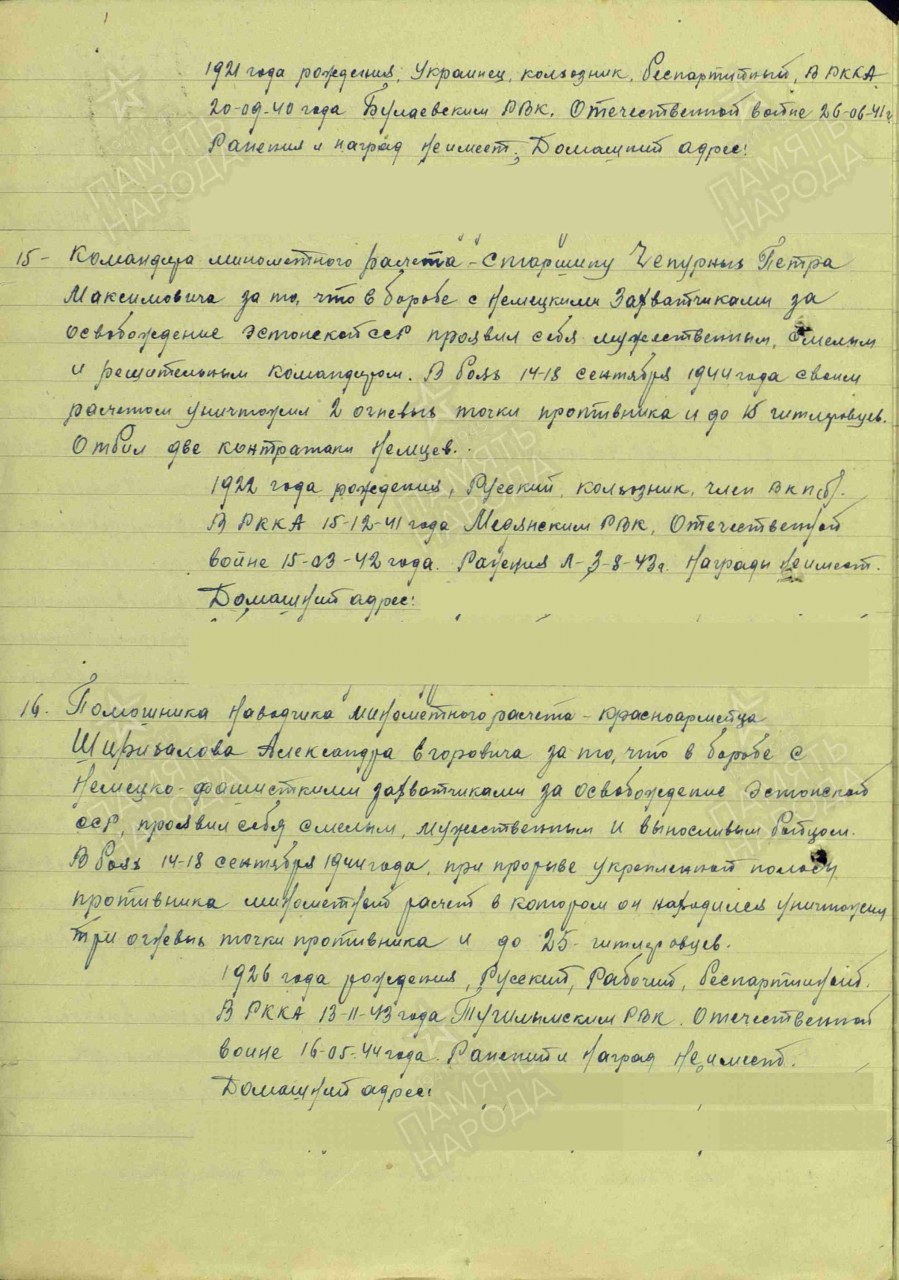 1921 года рождения, Украинец, колхозник, беспартийный, В РККА
20-09-40 года Булаевским РВК. Отечественной войне 26-06-41 г
Ранения и наград не имеет. Домашний адрес:
15- Командира минометного расчета - Старшину Чепурных Петра
Максимовича за то, что в борьбе с немецкими захватчиками за
освобождение Эстонской ССР проявил себя мужественным, смелым
и решительным командиром. В боях 14-18 сентября 1944 года своим
расчетом уничтожил 2 огневых точки противника и до 15 гитлеровцев.
Отбил две контратаки немцев.
1922 года рождения, Русский, колхозник, член ВКП(б).
В РККА 15-12-41 года Медянским РВК, Отечественной
войне 15-03-42 года. Ранения Л-3-8-43г. Награды не имеет.
Домашний адрес:
16. Помошника наводчика минометного расчета - красноармейца
Александра Егоровича за то, что в борьбе с
немецко-фашисткими захватчиками за освобождение Эстонской
ССР, проявил себя смелым, мужественным и выносливым бойцом.
В боях 14-18 сентября 1944 года, при прорыве укрепленной полосы
противника минометный расчет в котором он находился уничтожил
три огневых точки противника и до 25 гитлеровцев.
1926 года рождения, Русский, Рабочий, беспартийный.
В РККА 13-11-43 года Тугулымским РВК. Отечественной
войне 16-05-44 года. Ранений и наград не имеет.
Домашний адрес:
ПАМЯТЬ НАРОДА